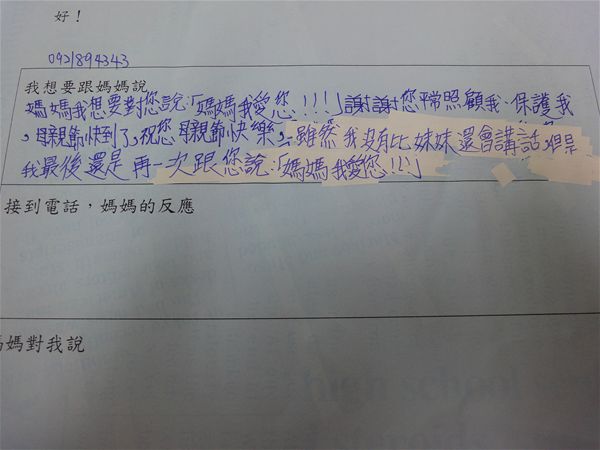 好！
0921894343
我想要跟媽媽說
媽媽我想要對您說：「媽媽我愛您！！！」謝謝您平常照顧我、保護我
，母親節快到了，祝您母親節快樂，雖然我沒有比妹妹還會講話，但是
我最後還是再一次跟您說：「媽媽我愛您！！！」
接到電話，媽媽的反應
媽媽對我說